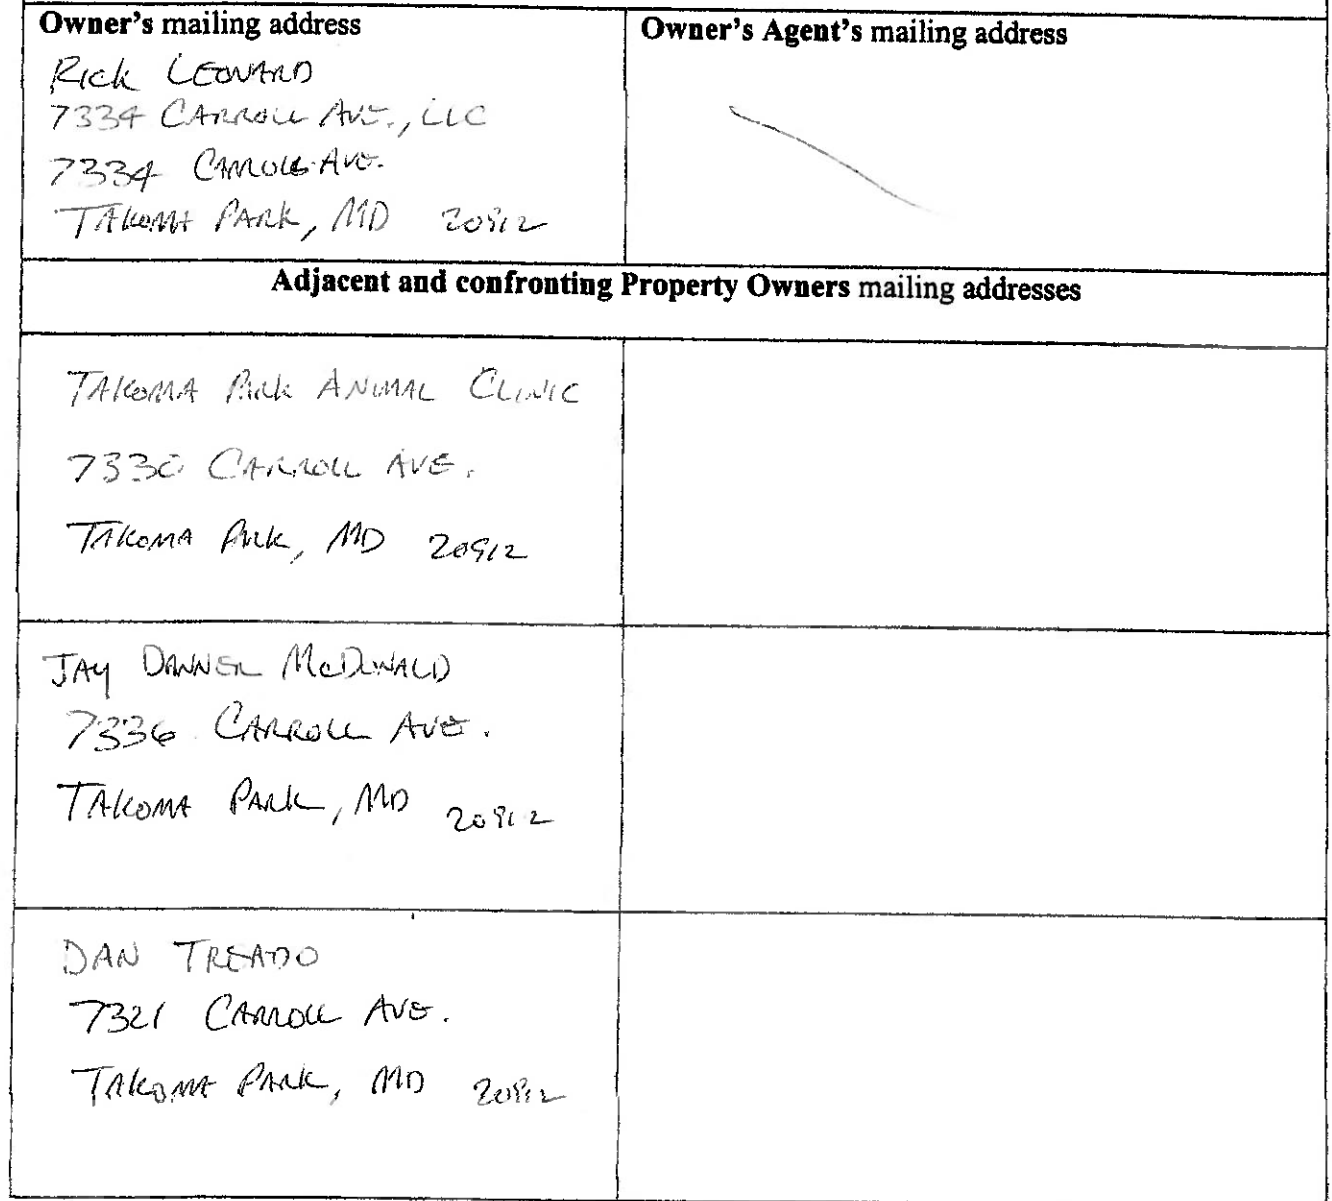 Owner's mailing address
Rick LEONARD
7334 CARROLL AVE., LLC
7334 CARROLL AVE.
TAKOMA PARK, MD 20912
Owner's Agent's mailing address
Adjacent and confronting Property Owners mailing addresses
TAKOMA PARK ANIMAL CLINIC
7330 CARROLL AVE.
TAKOMA PARK, MD 20912
JAY DANNER McDONALD
7336 CARROLL AVE.
TAKOMA PARK, MD 20912
DAN TREADO
7321 CARROLL AVE.
TAKOMA PARK, MD 20912